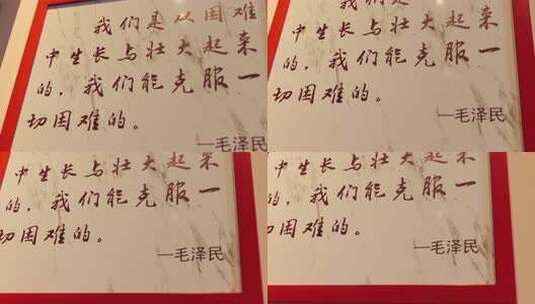 我们是从困难
中生长与壮大起来
的，我们能克服一
切困难的。
—毛泽民
我们是
中生长与壮大起来
的，我们能克服一
切困难的。
—毛泽民
中生长与壮大起来
的，我们能克服一
切困难的。
—毛泽民
中生长与壮大起来
的，我们能克服一
切困难的。
—毛泽民